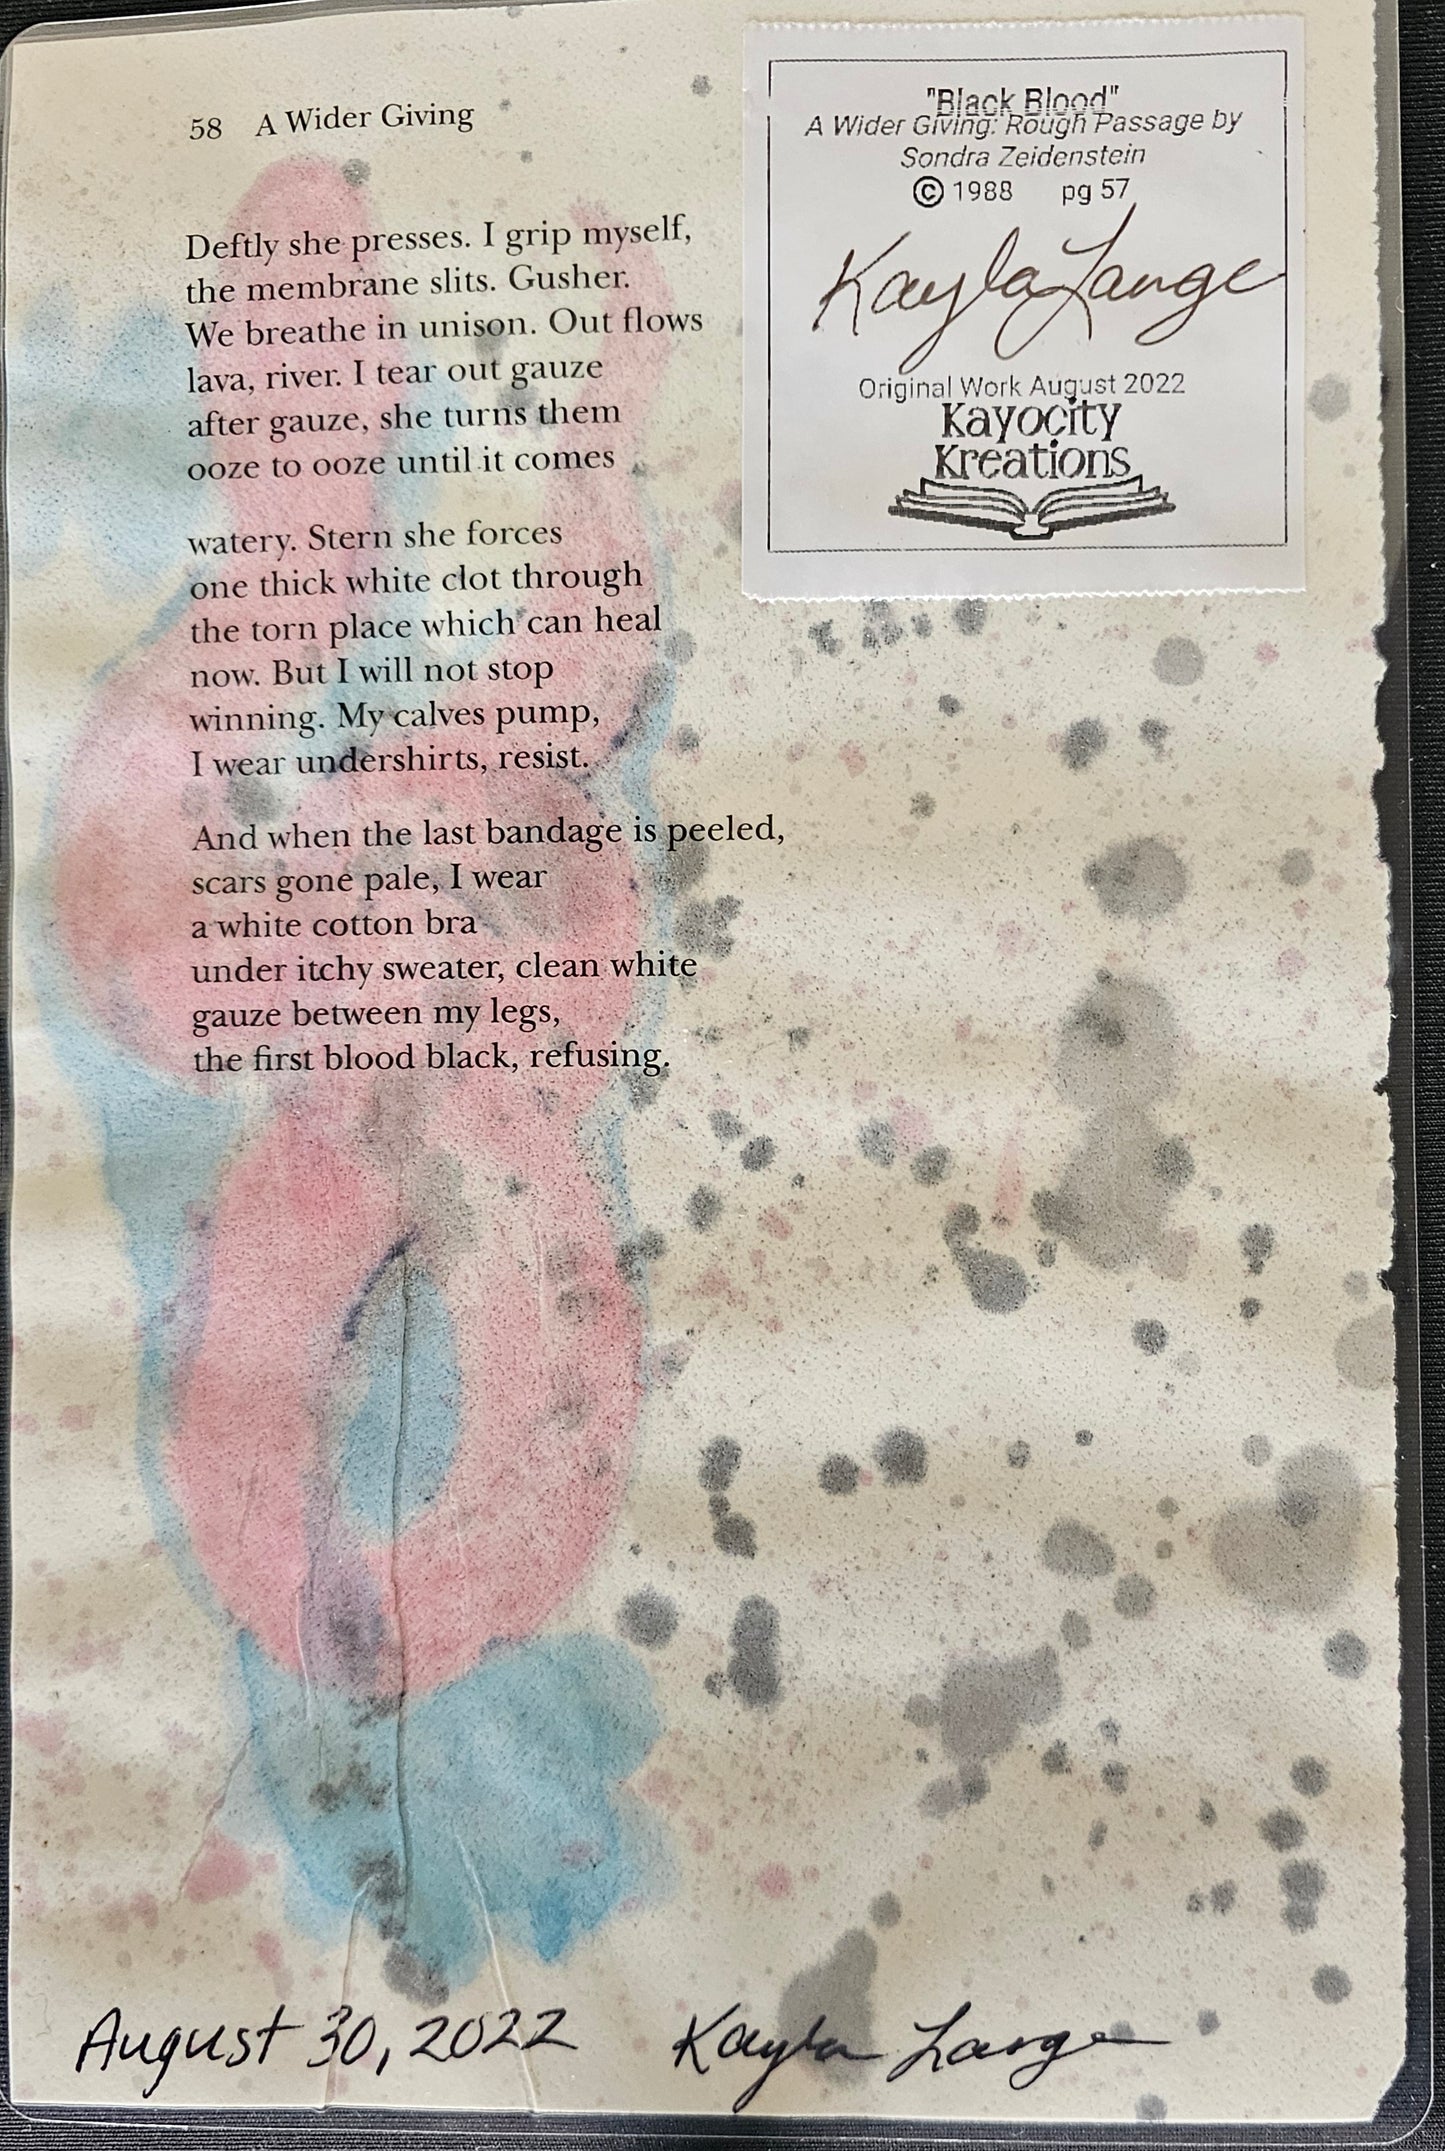 58 A Wider Giving
Deftly she presses. I grip myself,
the membrane slits. Gusher.
We breathe in unison. Out flows
lava, river. I tear out gauze
after gauze, she turns them
ooze to ooze until it comes
watery. Stern she forces
one thick white clot through
the torn place which can heal
now. But I will not stop
winning. My calves pump,
I wear undershirts, resist.
And when the last bandage is peeled,
scars gone pale, I wear
a white cotton bra
under itchy sweater, clean white
gauze between my legs,
the first blood black, refusing.
"Black Blood"
A Wider Giving: Rough Passage by
Sondra Zeidenstein
© 1988 pg 57
Kayla Lange
Original Work August 2022
Kayocity
Kreations
August 30, 2022 Kayla Lange